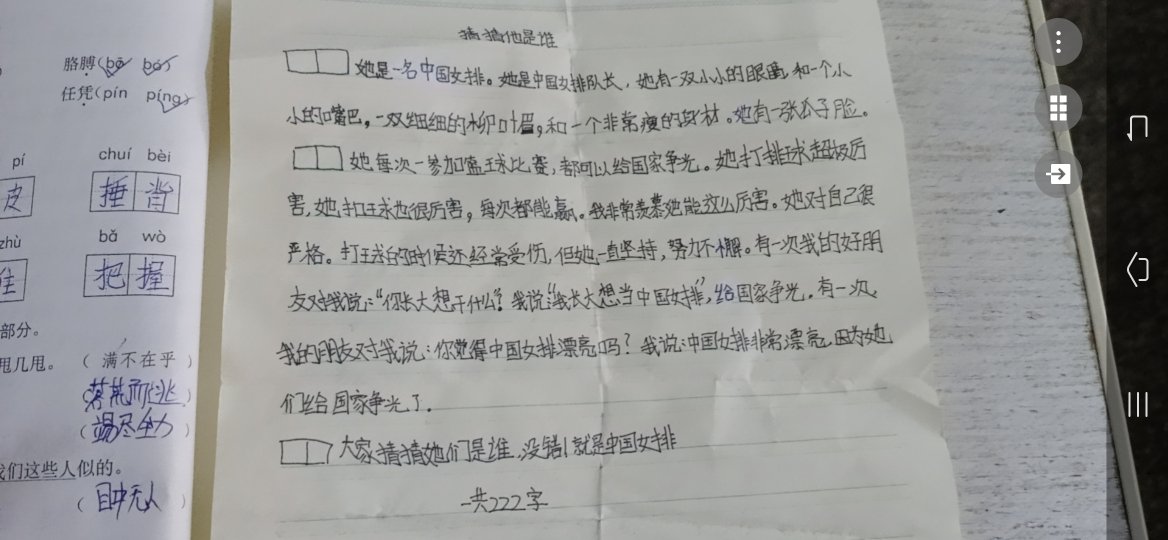 胳膊(bō bó)
任凭(pín píng)
pí
chuí bèi
皮
捶背
zhù
bǎ wò
把握
部分。
甩几甩。(满不在乎)
落荒而逃
(竭尽全力)
我们这些人似的。
(目中无人)
猜猜他是谁
她是一名中国女排。她是中国女排队长，她有一双小小的眼睛和一个小
小的嘴巴，一双细细的柳叶眉，和一个非常瘦的身材。她有一张瓜子脸。
她每次一参加篮球比赛，都可以给国家争光。她打排球超级厉
害，她扣球也很厉害，每次都能赢。我非常羡慕她能这么厉害。她对自己很
严格。打球的时候还经常受伤，但她一直坚持，努力不懈。有一次我的好朋
友对我说：“你长大想干什么？我说：“我长大想当中国女排”，给国家争光。有一次，
我的朋友对我说：你觉得中国女排漂亮吗？我说：中国女排非常漂亮，因为她
们给国家争光了。
大家猜猜她们是谁，没错！就是中国女排
一共222字